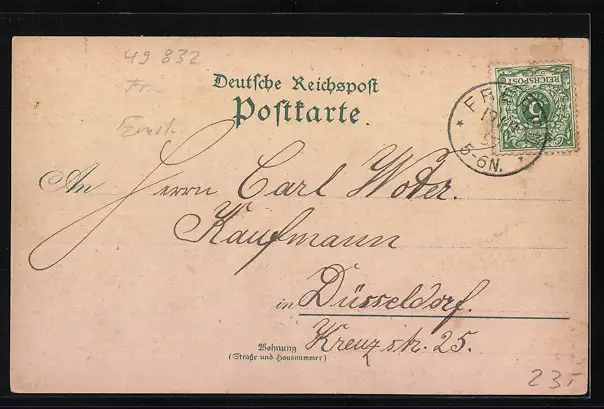 49 832
Fr.
Deutsche Reichspost
Postkarte.
REICHSPOST
5
5-6N.
An Herrn Carl Woter.
Kaufmann
in Düsseldorf.
Wohnung
(Straße und Hausnummer)
Kreuzstr. 25.
23,-